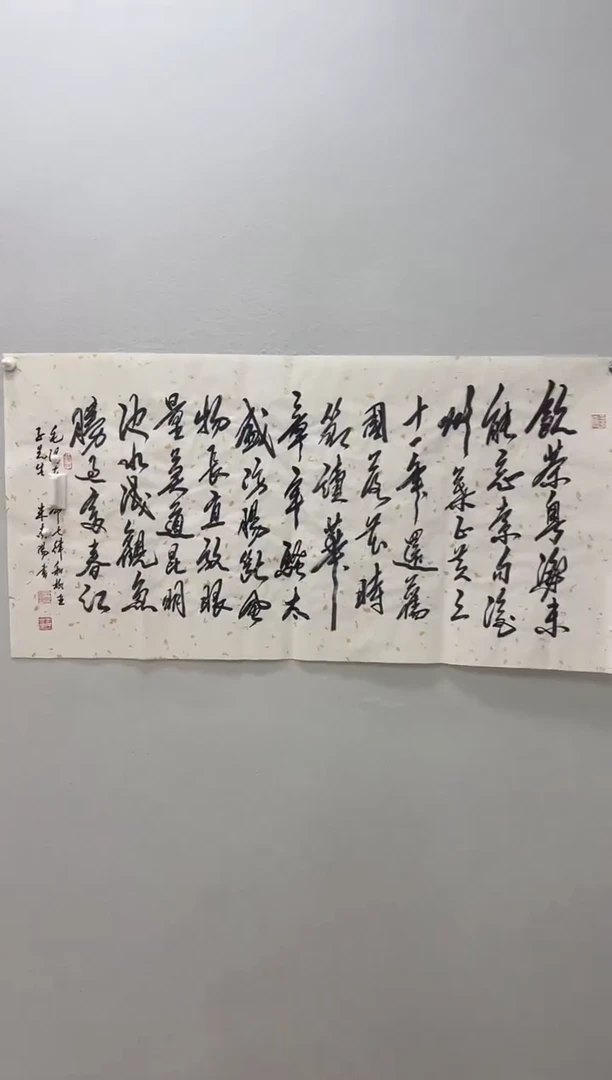 飲茶粵海未
能忘索句渝
州葉正黃三
十一年還舊
國落花時
節讀華
章牢騷太
盛防腸斷風
物長宜放眼
量莫道昆明
池水淺觀魚
勝過富春江
毛泽东 七律和柳亚
子先生 書